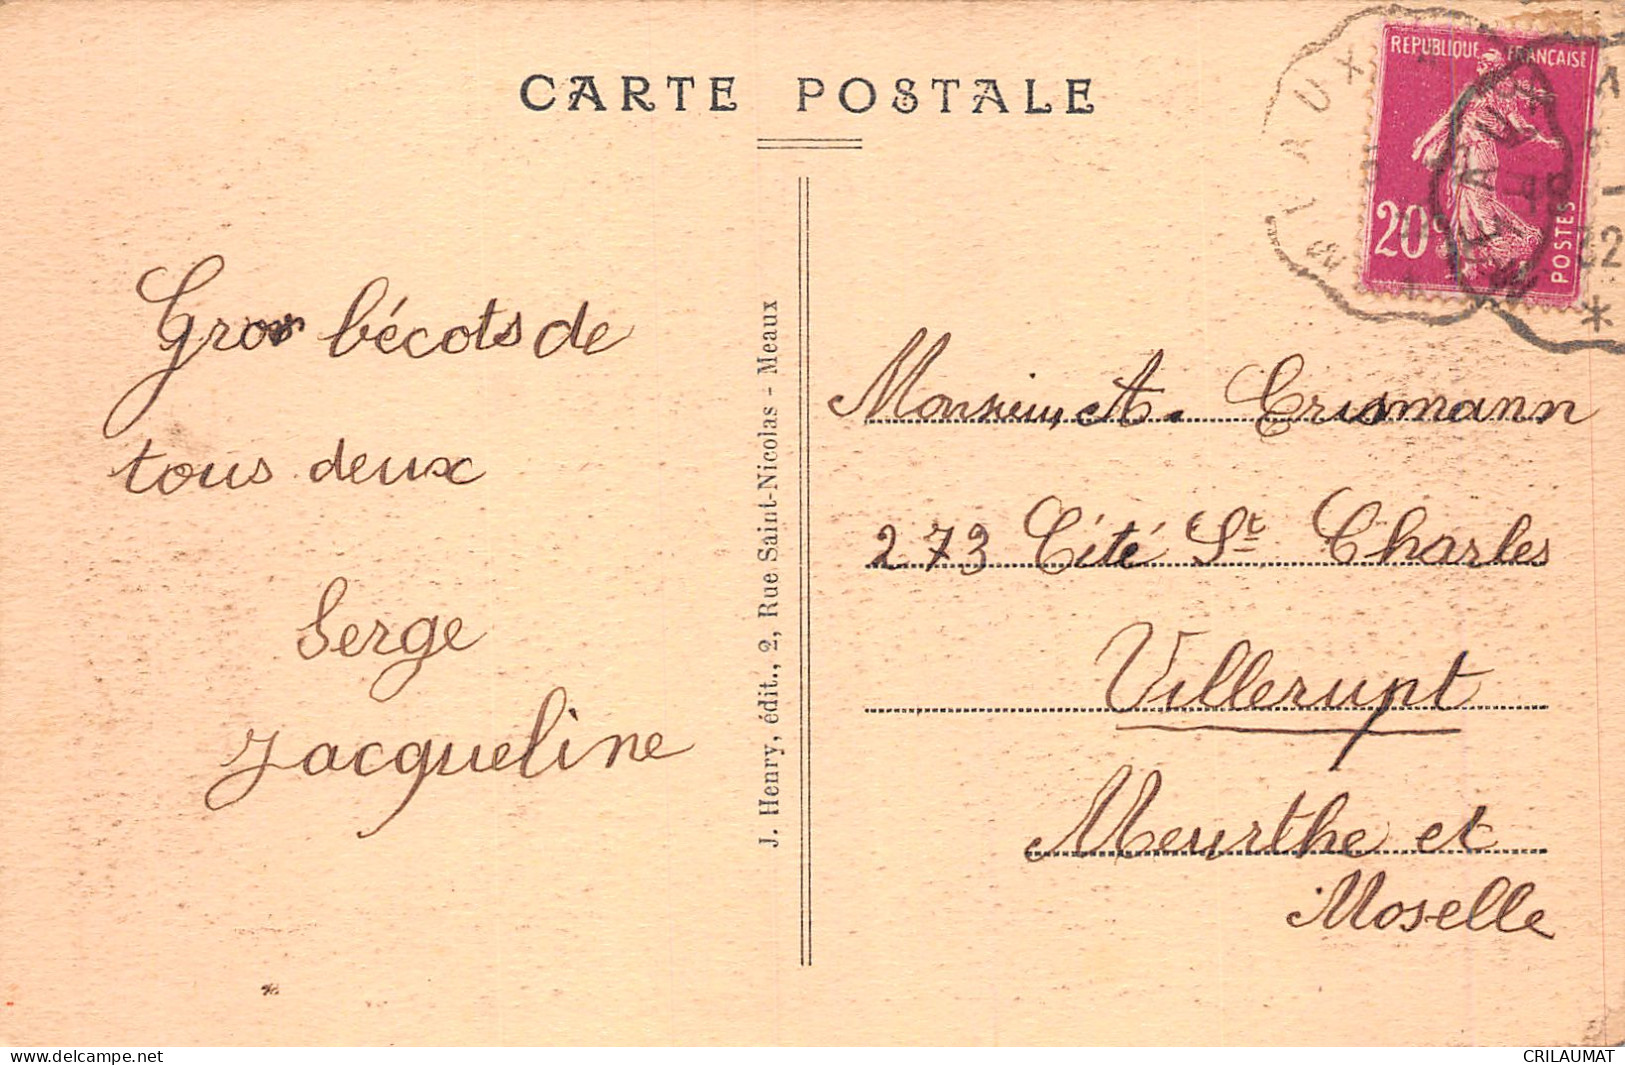 CARTE POSTALE
REPUBLIQUE FRANÇAISE
20c
POSTES
32
Gros bécots de
tous deux
Serge
Jacqueline
J. Henry, édit., 2, Rue Saint-Nicolas - Meaux
Monsieur A. Crismann
273 Cité St Charles
Villerupt
Meurthe et
Moselle
www.delcampe.net
CRILAUMAT